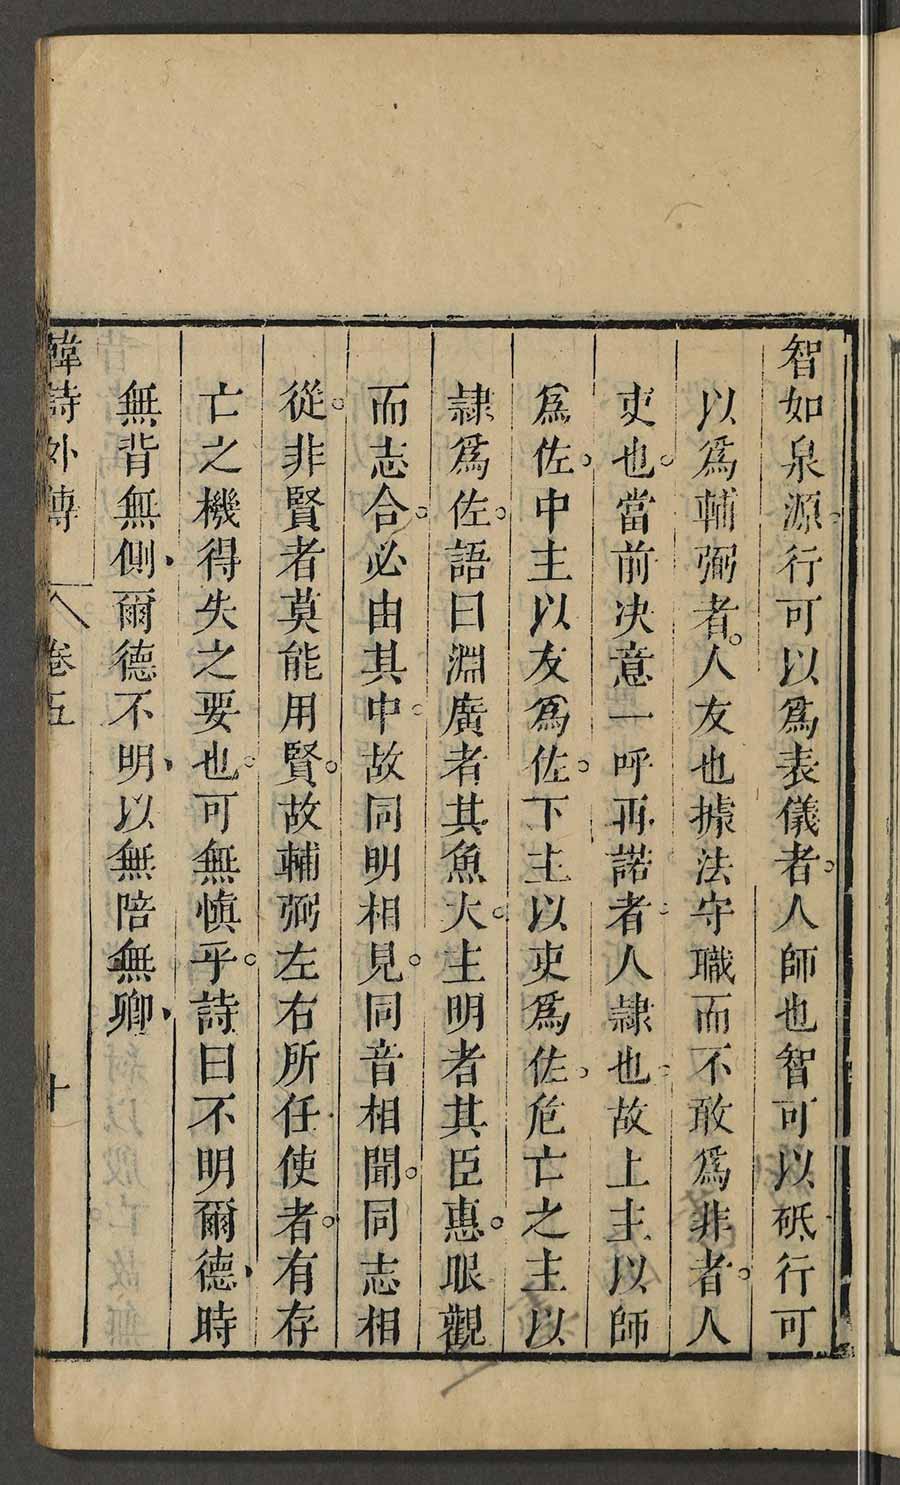 智如泉源行可以爲表儀者。人師也智可以砥行可
以爲輔弼者。人友也據法守職而不敢爲非者。人
吏也。當前决意一呼再諾者人隷也故上主以師
爲佐。中主以友爲佐。下主以吏爲佐。危亡之主以
隷爲佐。語曰淵廣者其魚大。主明者其臣惠。眼觀
而志合。必由其中。故同明相見。同音相聞。同志相
從。非賢者莫能用賢。故輔弼左右所任使者。有存
亡之機得失之要也。可無慎乎。詩曰不明爾德、時
無背無側、爾德不明、以無陪無卿、
韓詩外傳 卷五 十